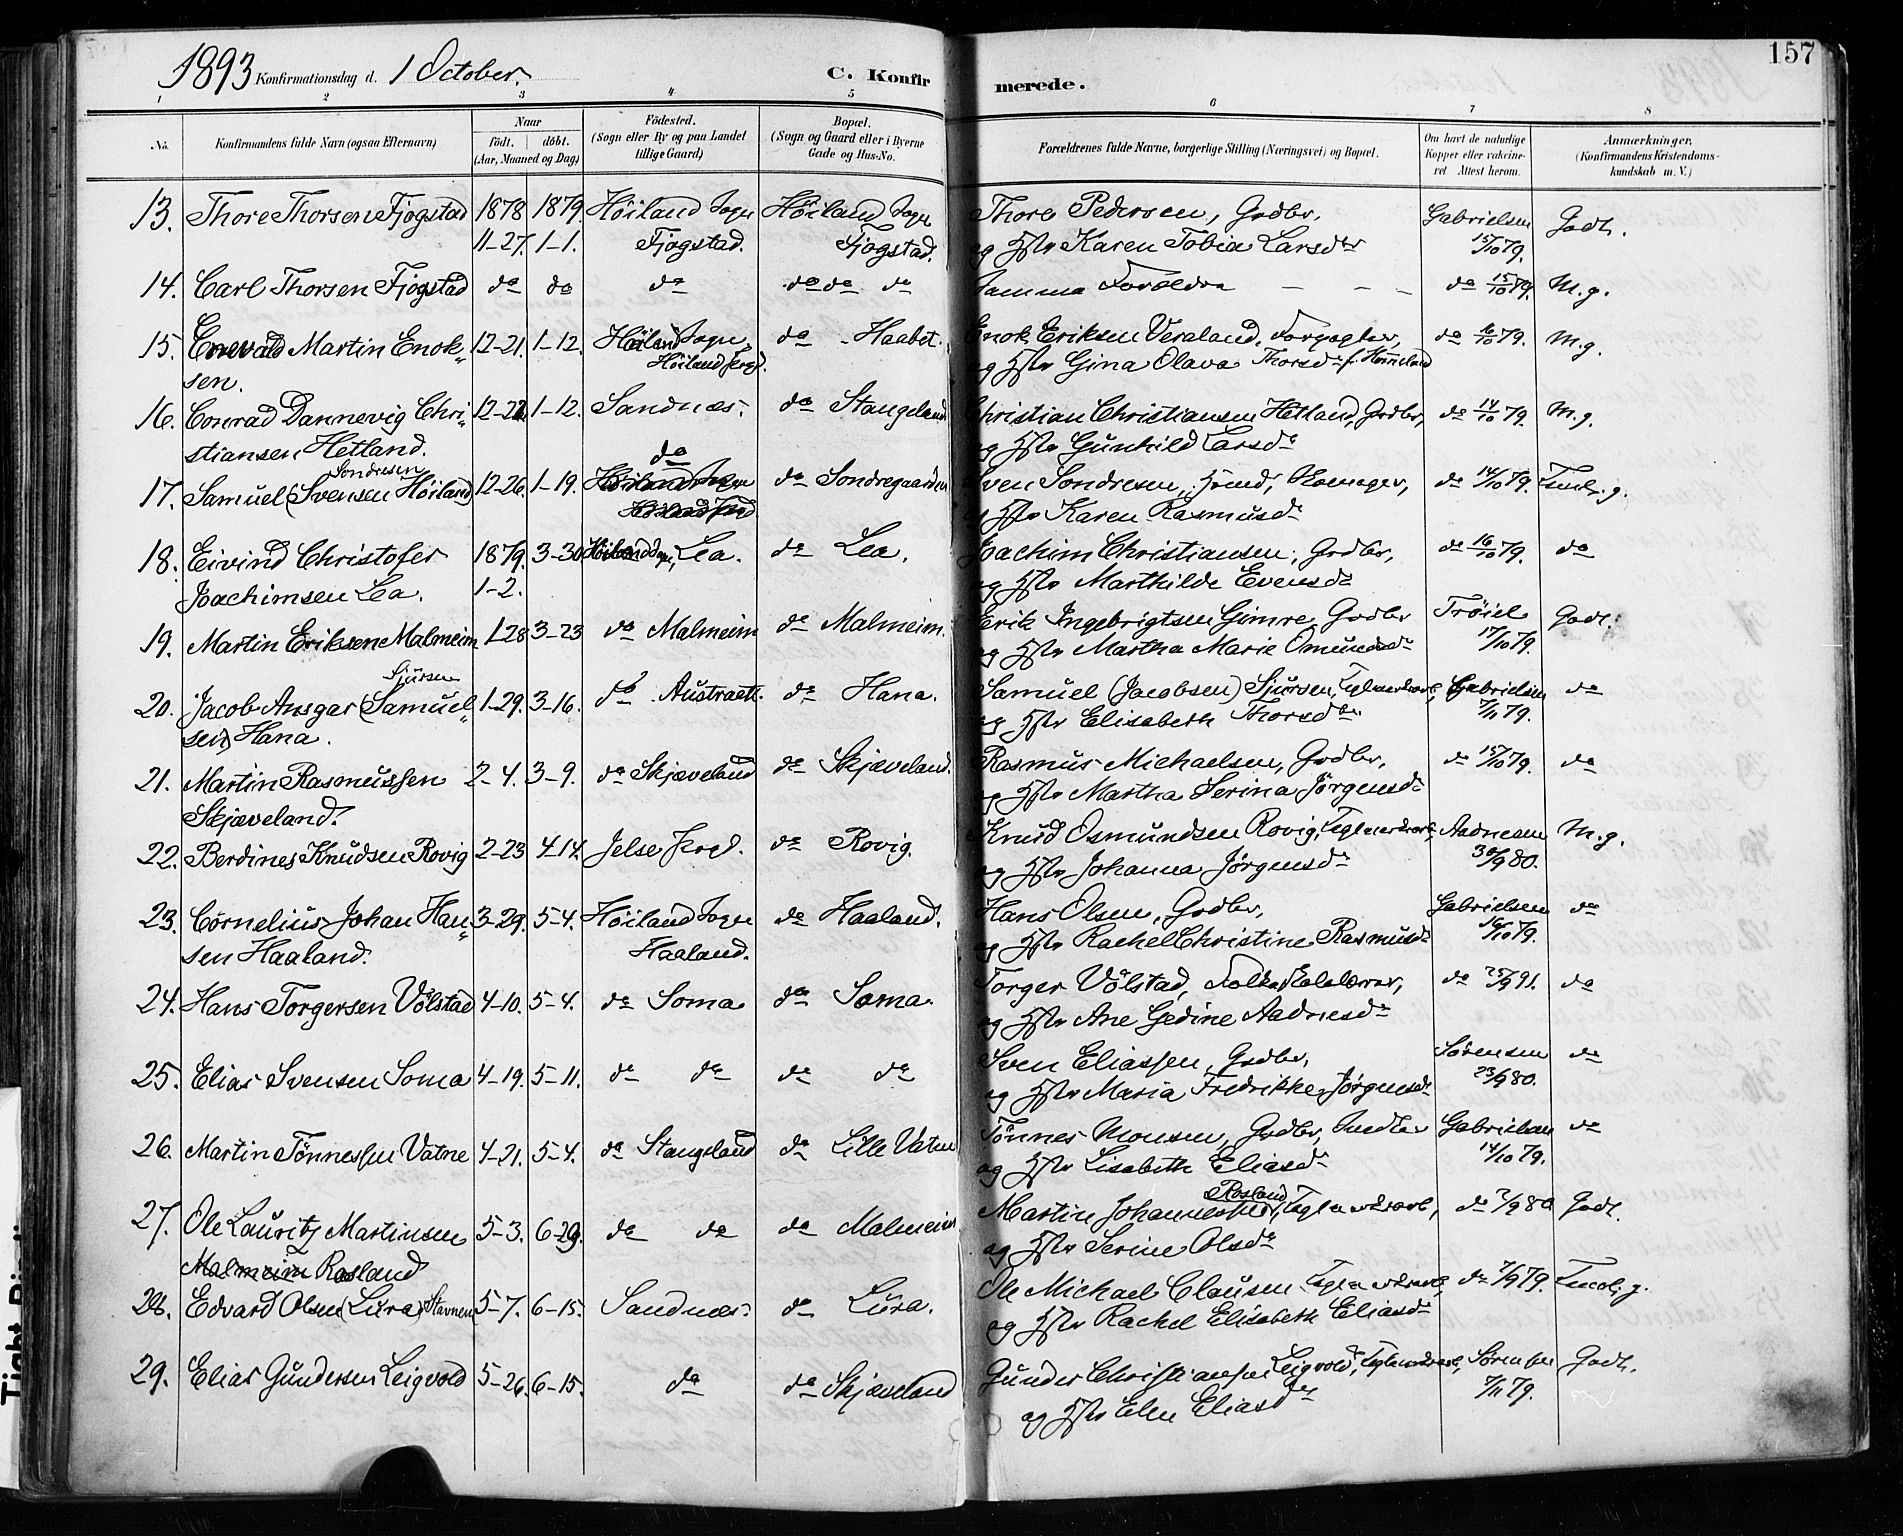 157
1893 Konfirmationsdag d. 1 October.
C. Konfirmerede.
1 2 3 4 5 6 7 8
No. Konfirmandens fulde Navn (ogsaa Efternavn) Naar födt. döbt. (Aar, Maaned og Dag) Födested. (Sogn eller By og paa Landet tillige Gaard) Bopæl. (Sogn og Gaard eller i Byerne Gade og Hus-No. Forældrenes fulde Navne, borgerlige Stilling (Næringsvei) og Bopæl. Om havt de naturlige Kopper eller vakcineret Attest herom. Anmærkninger, (Konfirmandens Kristendomskundskab m. V.)
13. Thore Thorsen Fjogstad 1878 1879 Höiland Sogn Höiland Sogn Thore Pedersen, Grdbr, Gabrielsen Godt.
11-27. 1-1. Fjogstad. Fjogstad. og Hstr Karen Tobia Larsdr 15/10 79.
14. Carl Thorsen Fjogstad do do do do do do Samme Forældre — — — do 15/10 79. M.g.
15. Enevald Martin Enok- 12-21. 1-12. Höiland Sogn, do Haabet. Enok Eriksen Veraland, do 16/10 79. M.g.
sen. Höiland Prgd. og Hstr Gina Olava Thorsdr f. Hommeland
16. Conrad Dannevig Chri- 1-12. Sandnæs. do Stangeland Christian Christiansen Hetland, Grdbr, do 14/10 79. M.g.
stiansen Hetland. og Hstr Gunhild Larsdr
Sondresen do
17. Samuel (Svensen Höiland) 12-26. 1-19. Höiland Sogn do Sondregaarden Sven Sondresen, Skomager, do 14/10 79. Tmel. g.
Höiland Prgd. og Hstr Karen Rasmusdr
18. Eivind Christofer 1879. 3-30 Höiland Sogn, Lea. do Lea. Joachim Christiansen, Grdbr, do 16/10 79. do
Joachimsen Lea. 1-2. og Hstr Marthilde Evensdr
19. Martin Eriksen Malmeim 1-28 3-23 do Malmeim do Malmeim. Erik Ingebrigtsen Gimre, Grdbr Tröiel Godt.
og Hstr Martha Marie Omundsdr 17/10 79.
Sjursen
20. Jacob Ansgar (Samuel- 1-29. 3-16. do Austraat. do Hana. Samuel (Jacobsen) Sjursen, Teglværksarb, Gabrielsen do
sen) Hana. og Hstr Elisabeth Thorsdr 7/11 79.
21. Martin Rasmussen 2-4. 3-9. do Skjæveland do Skjæveland. Rasmus Michaelsen, Grdbr, do 15/10 79. do
Skjæveland. og Hstr Martha Serina Jörgensdr
22. Berdines Knudsen Rovig 2-23 4-14. Jelse Prgd. do Rovig. Knud Osmundsen Rovig, Teglværksarb, Aadnesen M.g.
og Hstr Johanna Jörgensdr 30/9 80.
23. Cornelius Johan Han- 3-29. 5-4. Höiland Sogn do Haaland. Hans Olsen, Grdbr, Gabrielsen do
sen Haaland. Haaland. og Hstr Rachel Christine Rasmusdr 16/10 79.
24. Hans Torgersen Völstad 4-10. 5-4. do Soma do Soma. Torger Völstad, Folkeskolelærer, do 25/9 91. do
og Hstr Ane Gedine Aadnesdr
25. Elias Svensen Soma 4-19. 5-11. do do do do Sven Eliassen, Grdbr, Sörensen do
og Hstr Maria Fredrikke Jörgensdr 23/9 80.
26. Martin Tönnessen Vatne 4-21. 5-4. do Stangeland do Lille Vatne Tönnes Monsen, Grdbr, Smed Gabrielsen do
og Hstr Lisabeth Eliasdr 14/10 79.
Rosland
27. Ole Lauritz Martinsen 5-3. 6-29. do do do Malmeim Martin Johannessen, Teglværksarb, do 2/9 80 Godt.
Malmeim Rosland og Hstr Serine Olsdr
28. Edvard Olsen (Lura) Stavnem 5-7. 6-15. Sandnæs. do Lura. Ole Michael Clausen, Teglværksarb, do 7/9 79. Tmel. g.
og Hstr Rachel Elisabeth Eliasdr
29. Elias Gundersen Leigvold 5-26. 6-15. do do Skjæveland Gunder Christiansen Leigvold, Teglværksarb, Sörensen Godt.
og Hstr Elen Eliasdr 7/11 79.